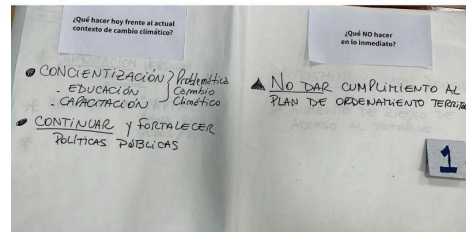 ¿Qué hacer hoy frente al actual
contexto de cambio climático?
CONCIENTIZACIÓN } Problemática
. EDUCACIÓN Cambio
. CAPACITACIÓN Climático
CONTINUAR y FORTALECER
POLÍTICAS PÚBLICAS
¿Qué NO hacer
en lo inmediato?
NO DAR CUMPLIMIENTO AL
PLAN DE ORDENAMIENTO TERRITO
1